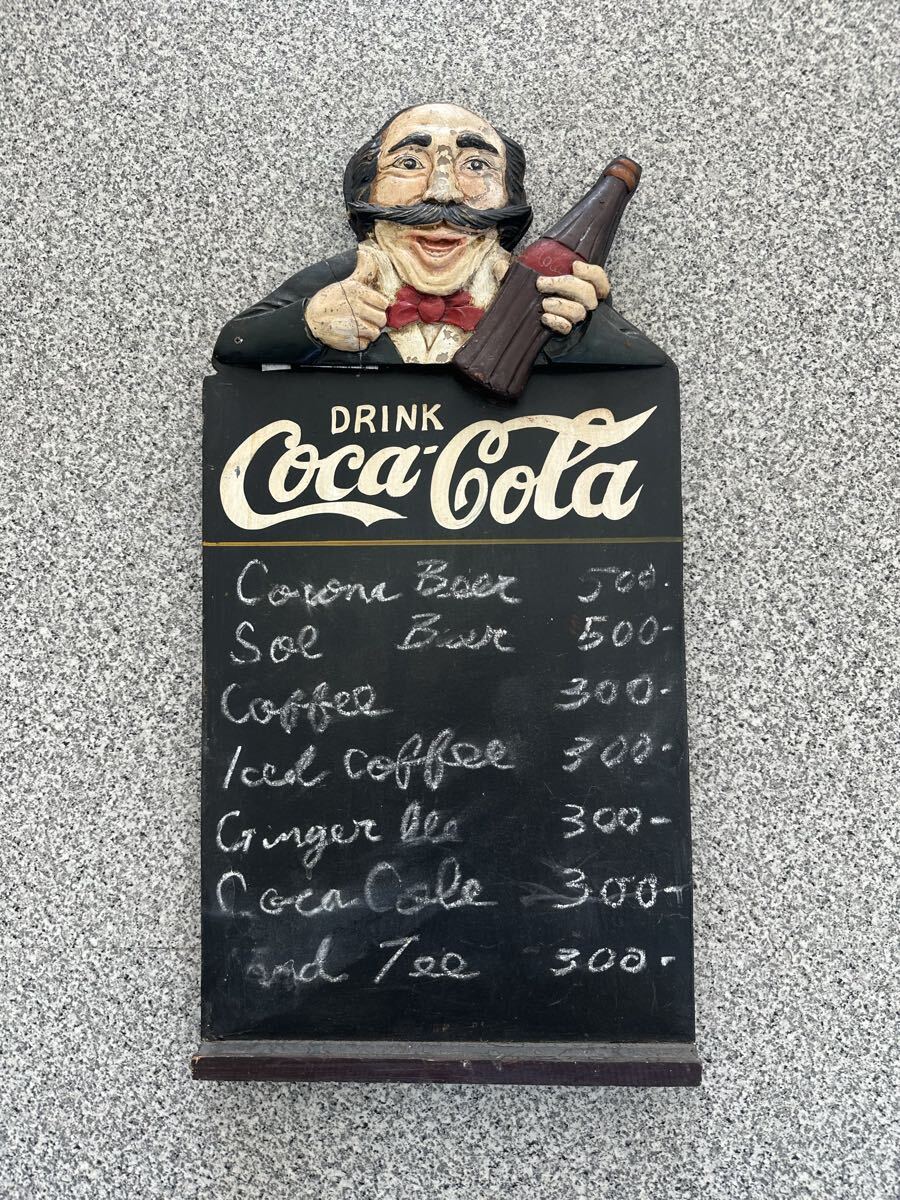 DRINK
Coca-Cola
Corona Beer 500-
Sol Beer 500-
Coffee 300-
Iced Coffee 300-
Ginger 300-
Coca Cola 300-
Tee 300-